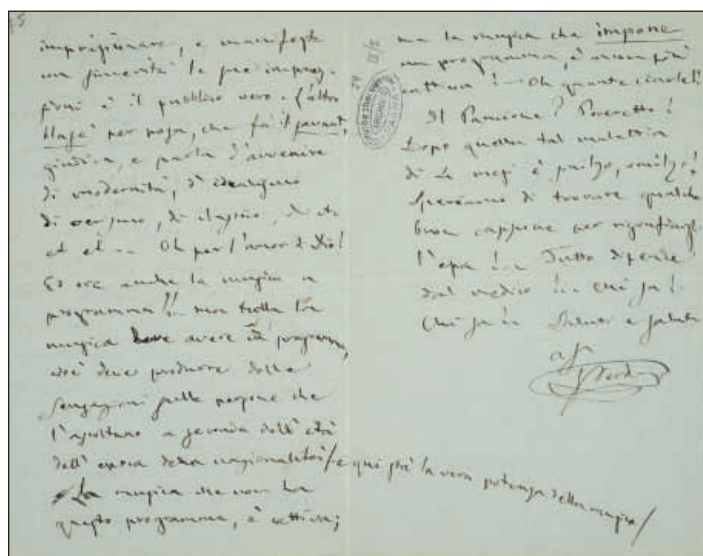 imprigionare, e manifesta
con sincerità le sue impres-
sioni è il pubblico vero. L'altro
blasé per posa, che fa il savant,
giudica, e parla d'avvenire
di modernità, d'idealismo
di verismo, di etc
et et .. Oh per l'amor di Dio!
Ed ora anche la musica a
programma!! Ma tutta la
musica deve avere un programma,
cioè deve produrre delle
sensazioni sulle persone che
l'ascoltano a seconda dell'età
dell'epoca della nazionalità /e qui stà la vera potenza della musica/
La musica che non ha
questo programma, è cattiva;
ma la musica che impone
un programma, è ancor più
cattiva! — Oh quante ciarle!
Il Pancione? Poveretto!
Dopo quella tal malattia
di 4 mesi è smilzo, smilzo!
Speriamo di trovare qualche
buon cappone per rigonfiargli
l'epa!.. Tutto dipende
dal medico!.. Chi sa!
Chi sa!.. Saluti e saluti
aff
G Verdi